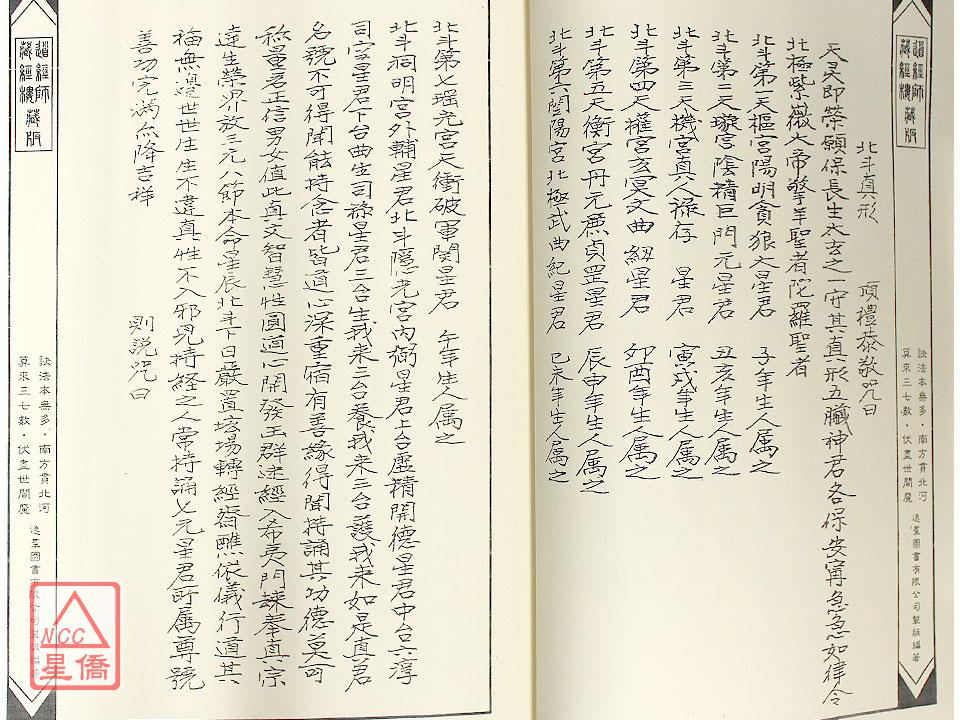 道經師
藏經樓藏版
訣法本無多·南方貫北河
算來三七數·伏盡世間魔
逸羣圖書有限公司製版編著
北斗真形 頂禮恭敬咒曰
天昊即榮願保長生太玄之一守其真形五臟神君各保安寧急急如律令
北極紫薇大帝擎羊聖者陀羅聖者
北斗第一天樞宮陽明貪狼太星君 子年生人属之
北斗第二天璇宮陰精巨門元星君 丑亥年生人属之
北斗第三天機宮真人祿存 星君 寅戌年生人属之
北斗第四天權宮玄冥文曲紐星君 卯酉年生人属之
北斗第五天衡宮丹元廉貞罡星君 辰申年生人属之
北斗第六闓陽宮北極武曲紀星君 巳未年生人属之
北斗第七瑶光宮天衝破軍関星君 午年生人属之
北斗洞明宮外輔星君北斗隱光宮內弼星君上台虛精開德星君中台六淳
司空星君下台曲生司祿星君三台生我来三台養我来三台護我来如是真君
名號不可得聞能持念者皆道心深重宿有善緣得聞持誦其功德莫可
称量君正信男女值此真文智慧性圓道心開發玉群迷經入希夷門棘奉真宗
達生榮界放三元八節本命星辰北斗下日嚴置垓場轉經齋醮依儀行道其
福無邊世世生生不違真性不入邪見持經之人常持誦七元星君所属尊號
善功完滿众降吉祥 則說咒曰
道經師
藏經樓藏版
訣法本無多·南方貫北河
算來三七數·伏盡世間魔
逸羣圖書有限公司製版編著
NCC
星僑